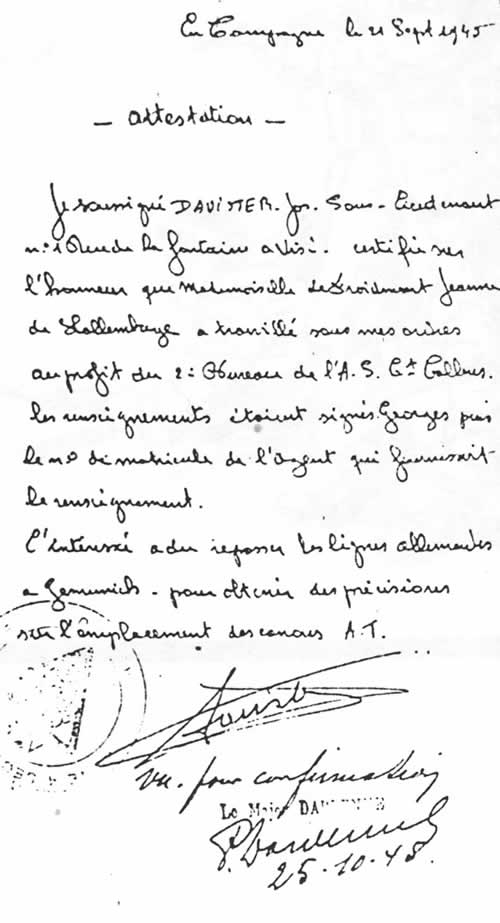 En Campagne le 21 Sept 1945
- Attestation -
Je soussigné DAVISTER. Jos. Sous-Lieutenant
n: 1 Rue de la fontaine a Visé. certifie sur
l'honneur que Mademoiselle de Froidmont Jeanne
de Hollembaye a travaillé sous mes ordres
au profit du 2: Bureau de l'A.S. Ct
les renseignements étaient signés Georges puis
le no de matricule de l'agent qui fournissait
le renseignement.
L'interessé a du repasser les lignes allemandes
a Gemmenich - pour obtenir des précisions
sur l'emplacement des canons A.T.
Vu. pour confirmation
Le Major
25-10-45.